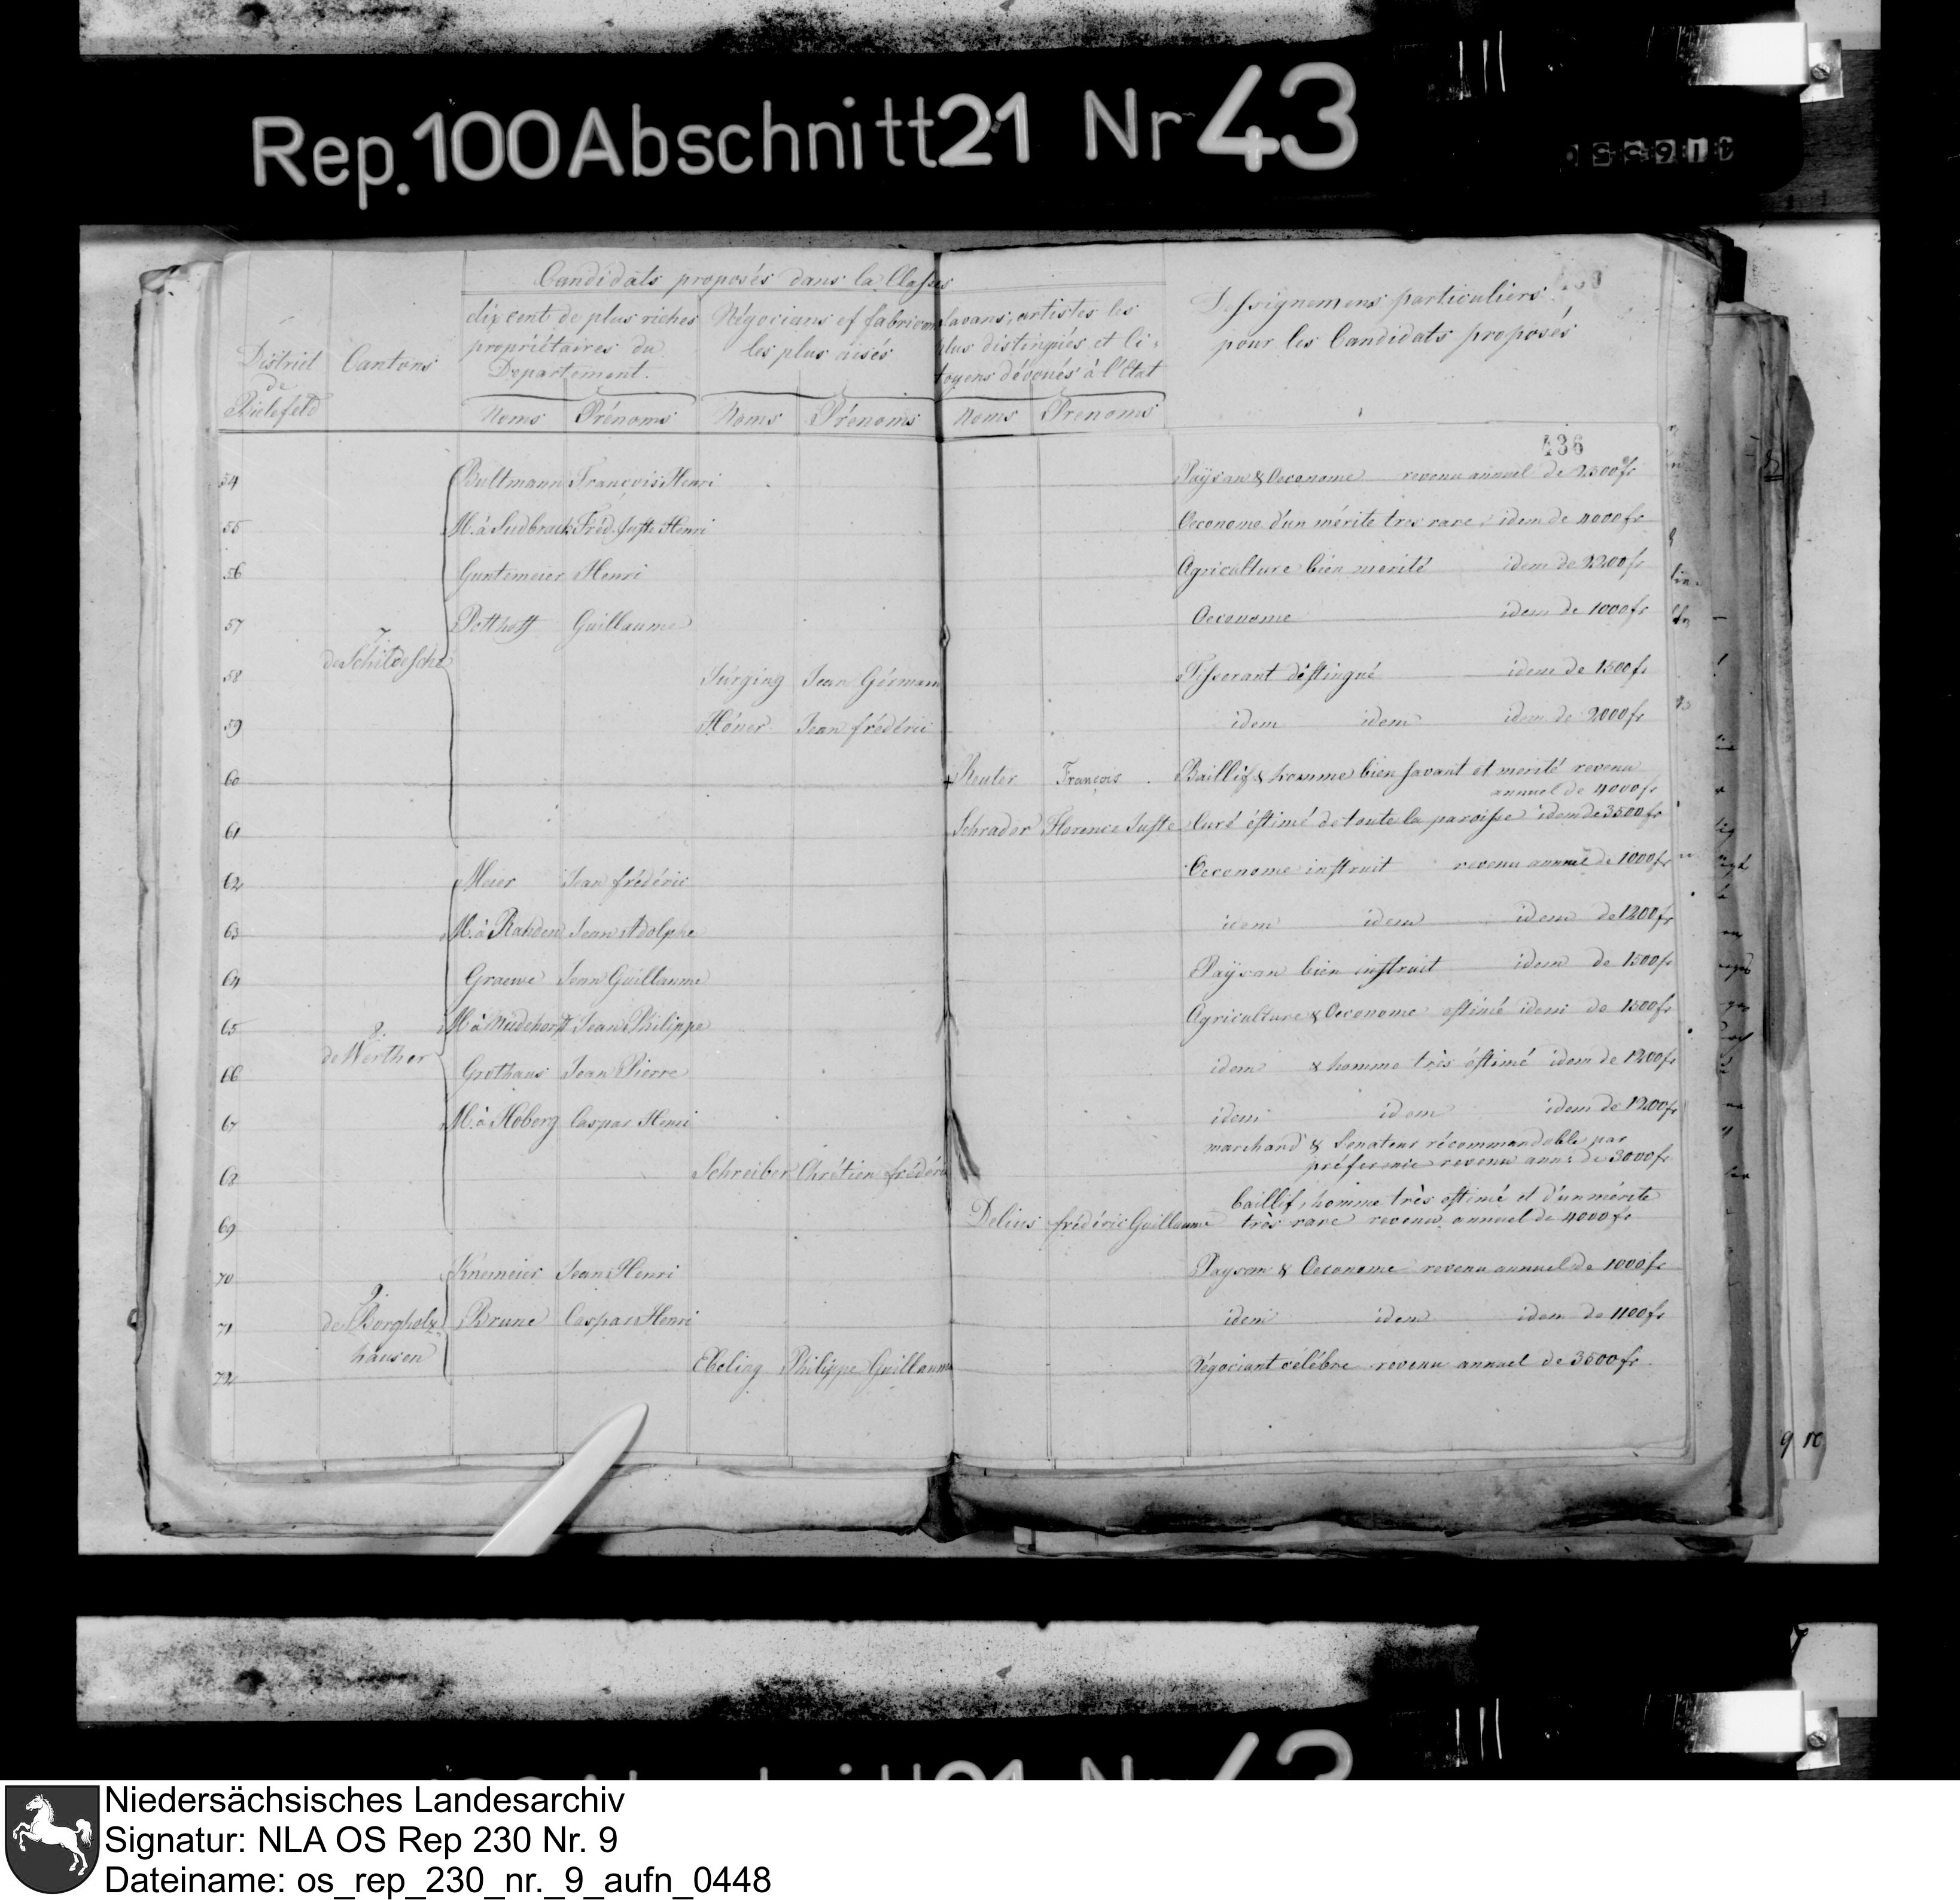 Rep. 100 Abschnitt 21 Nr 43
Candidats proposés dans la Classe
District de Bielefeld
Cantons
dix cent de plus riches propriétaires du Departement.
Négocians et fabricans les plus aisés
savans, artistes les plus distingués et citoyens dévoués à l'Etat
pour les Candidats proposés
Noms Prénoms Noms Prénoms Noms Prenoms
436
7. de Schildesche
54 Bultmann François Henri Paÿsan & Oeconome revenu annuel de 2500 fr
55 M. à Sudbrack Fréd. Juste Henri Oeconome d'un mérite tres rare, idem de 4000 fr
56 Guntemeier Henri Agriculture bien merité idem de 2200 fr
57 Potthoff Guillaume Oeconome idem de 1000 fr
58 Sürging Jean Gérmain Tisserant distingué idem de 1500 fr
59 Höner Jean frédéric idem idem idem de 2000 fr
60 Reuter François Baillif & homme bien savant et merité revenu
annuel de 4000 fr
61 Schrader Florence Juste Curé éstimé de toute la paroisse idem de 3500 fr
62 Meier Jean frédéric Oeconome instruit revenu annuel de 1000 fr
63 M. à Rahden Jean Adolphe idem idem idem de 1200 fr
64 Graewe Jean Guillaume Paÿsan bien instruit idem de 1500 fr
8. de Werther
65 M. à Jean Philippe Agriculture & Oeconome estimé idem de 1500 fr
66 Grothaus Jean Pierre idem & homme très éstimé idem de 1200 fr
67 M. à Hoberg Caspar Henri idem idem idem de 1200 fr
marchand & Senateur récommandable par
68 Schreiber Chrétien frédéric préference revenu ann: de 3000 fr
baillif, homme très estimé et d'un mérite
69 Delius frédéric Guillaume très rare revenu annuel de 4000 fr
70 Knemeier Jean Henri Paysan & Oeconome revenu annuel de 1000 fr
9. de Borgholzhausen
71 Brune Caspar Henri idem idem idem de 1100 fr
72 Ebeling Philippe Guillaume Négociant célébre revenu annuel de 3500 fr
Niedersächsisches Landesarchiv
Signatur: NLA OS Rep 230 Nr. 9
Dateiname: os_rep_230_nr._9_aufn_0448